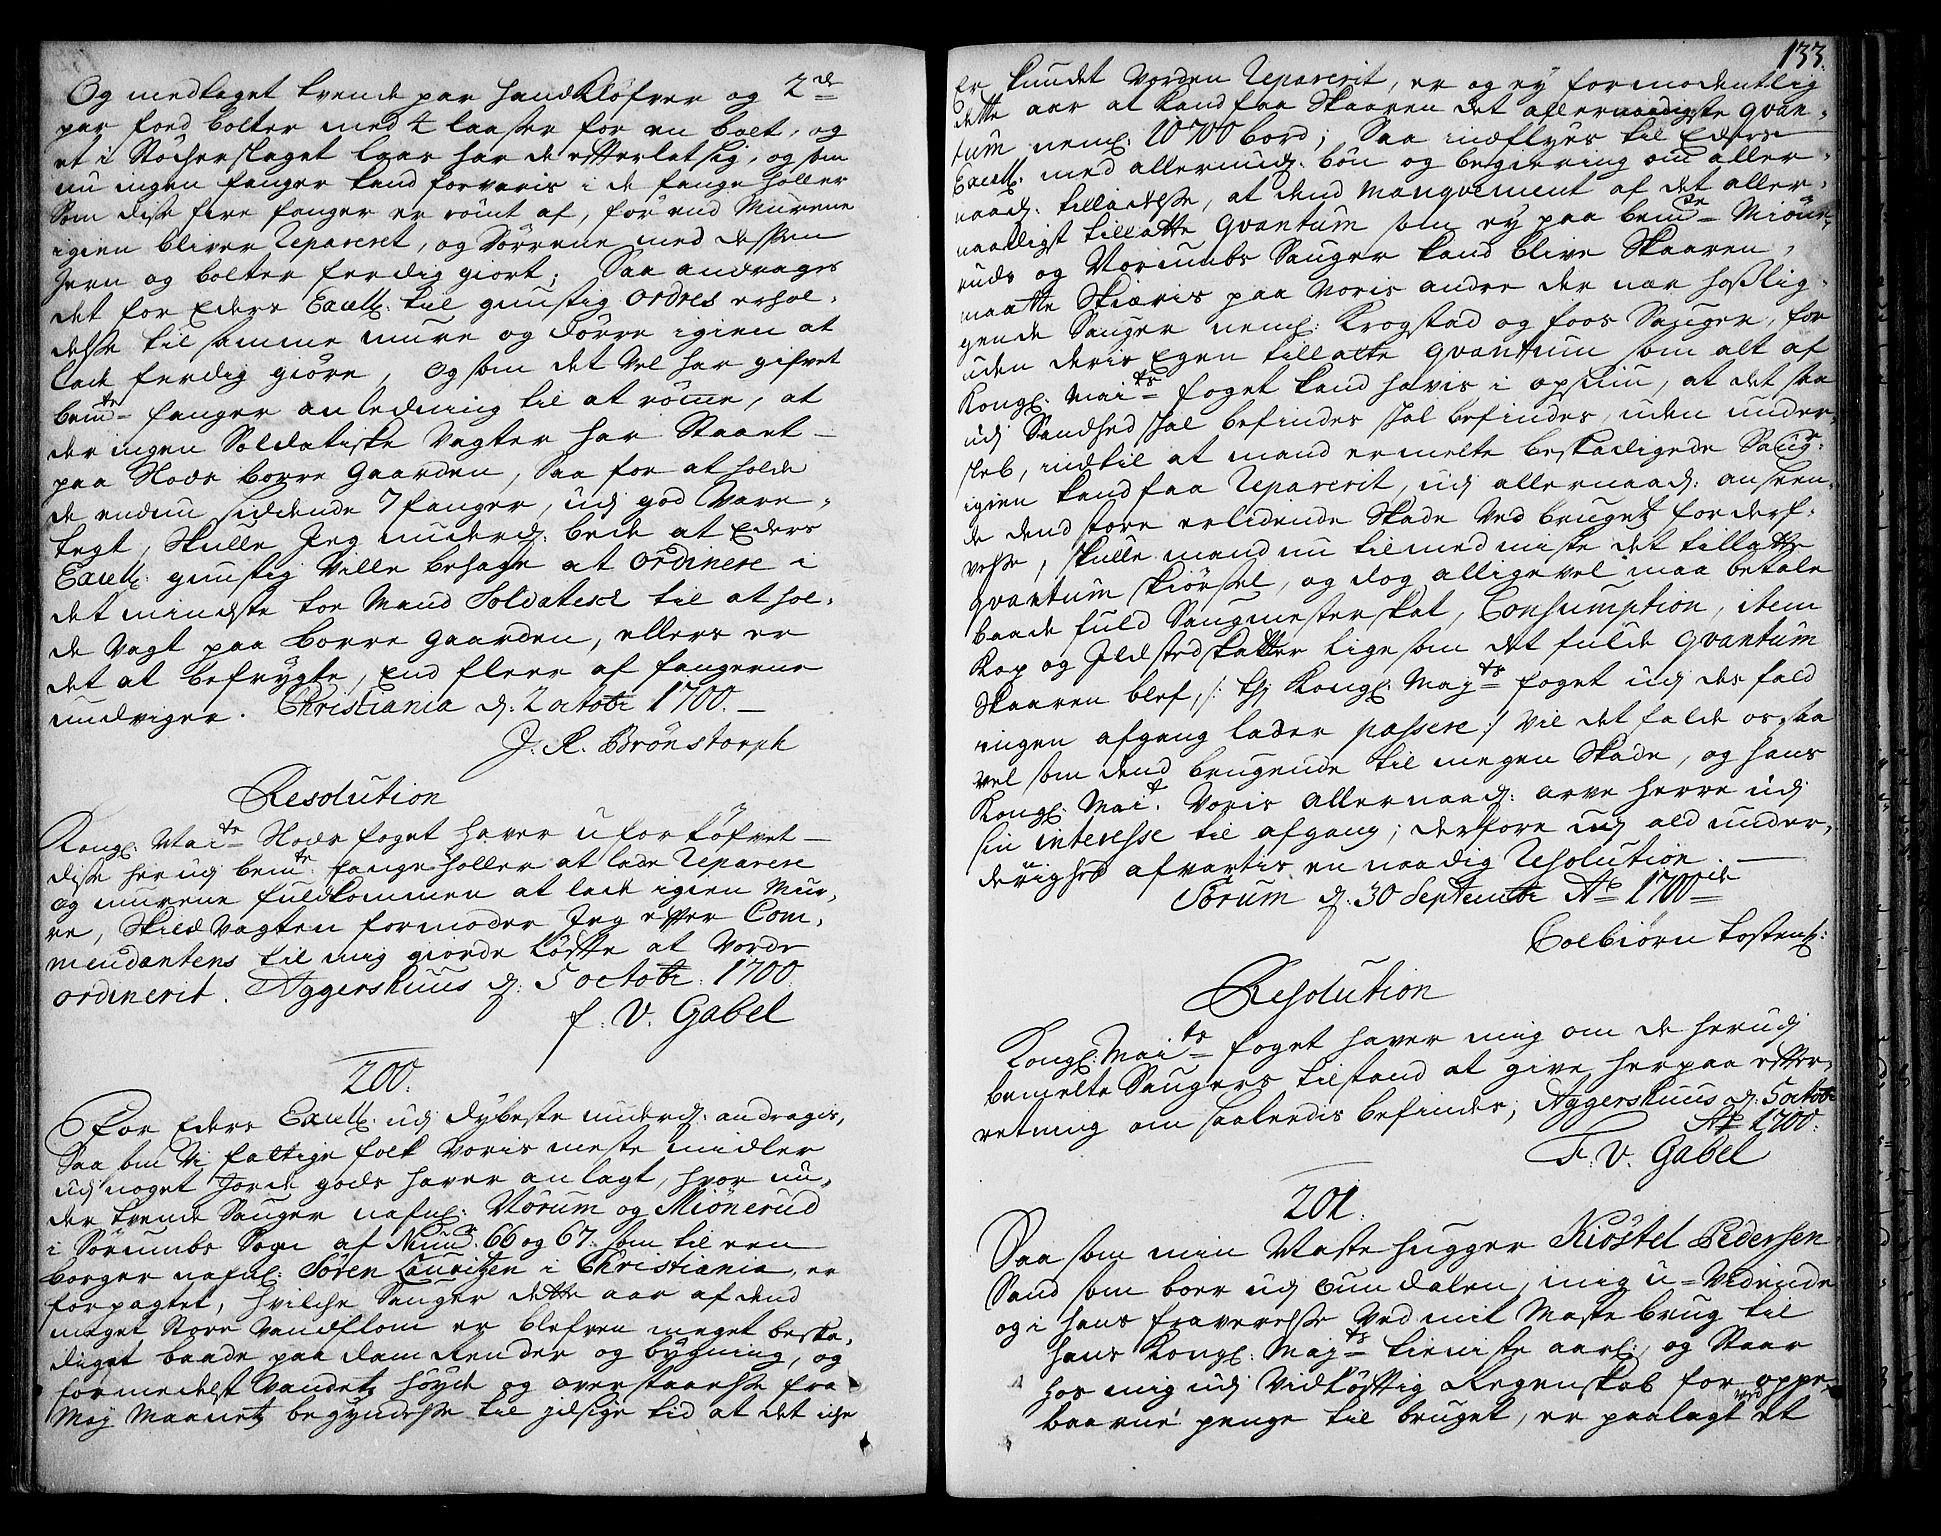 Og medtaget tvende par Handklöfver og 2de
par fod bolter med 2 laaser for en bolt, og
et i Stöcher slaget laas har de efterlat sig, og som
nu ingen fanger kand forvaris i de fange holler
Som disse fire fanger er römt af, för end Murene
igien bliver Repareret, og Dörrene med dessen
Jern og bolter ferdig giort; Saa andrages
det for Eders Excell: til gunstig ordres erhol-
delse til samme mure og dörre igien at
lade ferdig giöre, Og som det vel har gifvet
bemte fanger anledning til at römme, at
der ingen Soldatiske Vagter har Staaet
paa Slods borre Gaarden, Saa for at holde
de endnu siddende 7 fanger, udj god Vare-
tegt, Skulle Jeg underd: bede at Eders
Excell: gunstig Ville behage at ordinere i
det mindste toe Mand Soldatesk til at hol-
de Vagt paa borre gaarden, ellers er
det at befrygte, End flere af fangerne
undviger. Christiania d: 2 octobr 1700.
J. R. Brönstorph
Resolution
Kongl: Maits Slods foget haver ufortöfvet
disse herudj bemte fange holler at lade Reparere
og murene fuldkommen at lade igien Mur-
re, Skild Vagten formoder Jeg efter Com-
mendantens til mig giorde löfte at Vorde
ordinerit. Aggershuus d: 5 octobr: 1700.
f: V. Gabel
200.
For Eders Excell: udj dybeste underd: andragis,
Saa som Vi fattige folk Voris meste midler
udj noget Jorde gods haver anlagt, hvor un-
der tvende Sauger nafnl: Vorum og Miönerud
i Sörumbs Sogn af Numr: 66 og 67. som til een
borger nafnl: Sören Lauritzen i Christiania, er
forpagtet, hvilche Sauger dette aar af dend
meget Store Vandflom er blefven meget beska-
diget baade paa dam Render og bygning, og
formedelst Vandetz höyde og overstaaelse fra
May Maanetz begyndelse til Jilsige tid at det iche
133.
er kundet Vorden Reparerit, er og ey formodentlig
dette aar at kand faa Skaaren det allernaadigste qvan-
tum neml: 10700 bord; Saa indflyes til Eders
Excell: med allerund: bön og begiering om aller-
naad: tilladelse, at dend manqvement af det aller-
naadigst tillatte Qvantum som ey paa bemte Miöne-
ruds og Vorumbs Sauger kand blive Skaaren,
maatte Skiæris paa Voris andre der nær hoslig-
gende Sauger neml: Krogstad og foos Sauger, for
uden deris Egen tillatte qvantum som alt af
Kongl: Maits foget kand havis i opsiun, at det saa
udj Sandhed skal befindes skal befindes, uden under-
sleb, indtil at mand ermelte beskadigede Saug:
igien kand faa Reparerit, udj allernaad: anseen-
de dend store erlidende Skade Ved brugetz forderf-
velse, skulle mand nu tilmed miste det tillatte
qvantum skiörsel, og dog alligevel maa betale
baade fuld Saugmester skat, Consumption, item
Kop og Jldsted skatter lige som det fulde qvantum
Skaaren blef, /: thj Kongl: Mayts foget udj des fald
ingen afgang lader passere :/ vil det falde os saa
vel som dend brugende til megen Skade, og hans
Kongl: Mait: Voris allernaad: arve herre udj
sin interesse til afgang; derfore udj ald under-
dærighed afvartis en naadig Resolution.
Sörum d. 30 Septembr Ao 1700de
Colbiörn tostens:
Resolution
Kongl: Maits foget haver mig om de herudj
bemelte Saugers tilstand at give herpaa efter-
retning om saaledis befindes; Aggershuus d: 5 octobr
Ao 1700.
F. V. Gabel
201.
Saa som min Maste hugger Kiöstel Pedersen
Sand som boer udj Gundalen, mig u-Vidende
og i hans fraverelse Ved mit Maste brug til
hans Kongl: Mayts tieniste aarl:, og Staar
hos mig udj Vidtlöftig Regenskab for oppe-
baarne penge til bruget, er paalagt ved et